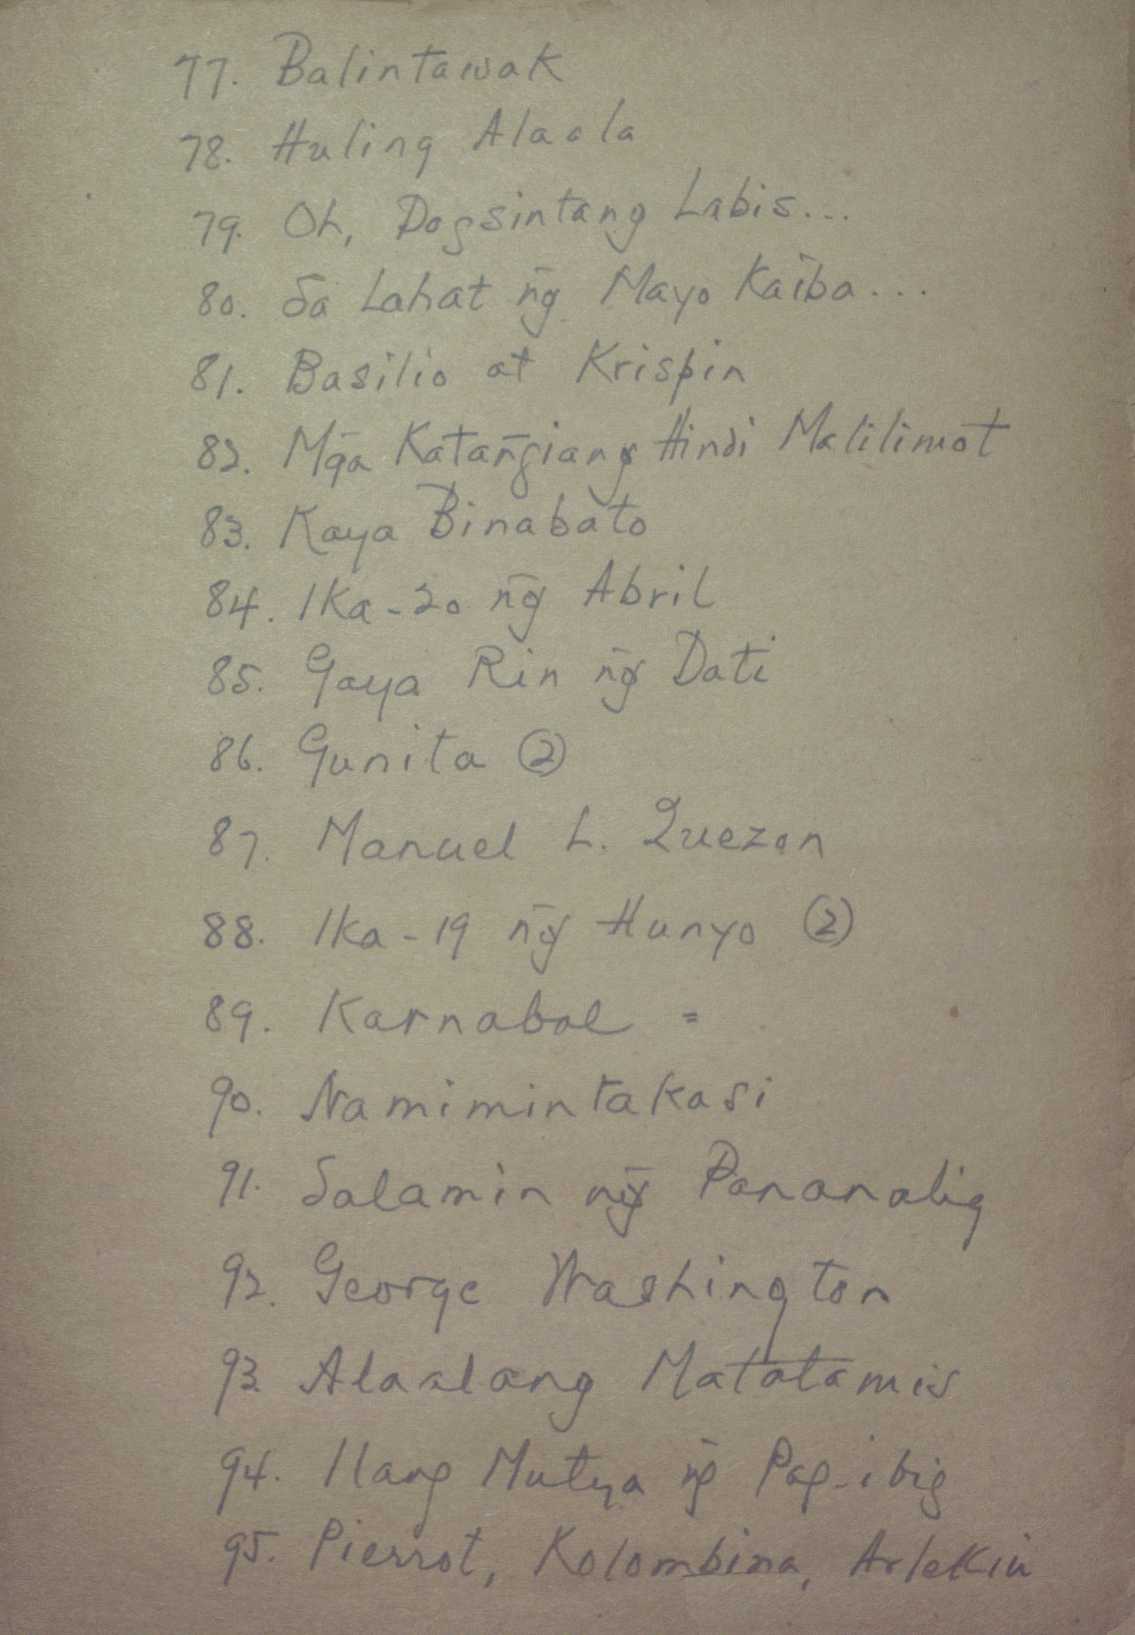 77. Balintawak
78. Huling Alaala
79. Oh, Dogsintang Labis...
80. Sa Lahat n̄g Mayo Kaiba...
81. Basilio at Krispin
82. Mḡa Katan̄giang Hindi Malilimot
83. Kaya Binabato
84. Ika-20 n̄g Abril
85. Gaya Rin n̄g Dati
86. Gunita ②
87. Manuel L. Quezon
88. Ika-19 n̄g Hunyo ②
89. Karnabal =
90. Namimintakasi
91. Salamin n̄g Pananalig
92. George Washington
93. Alaalang Matatamis
94. Ilang Mutya n̄g Pag-ibig
95. Pierrot, Kolombina, Arlekin